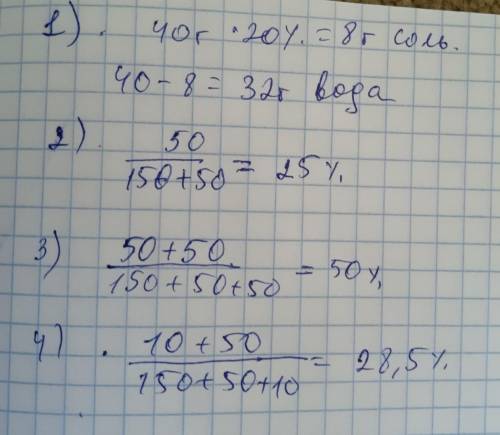 1). 40г · 20% = 8г соль.
40 - 8 = 32г вода
2). 50
150+50 = 25%.
3) 50+50
150+50+50 = 50%
4) . 10+50
150+50+10 = 28,5%.